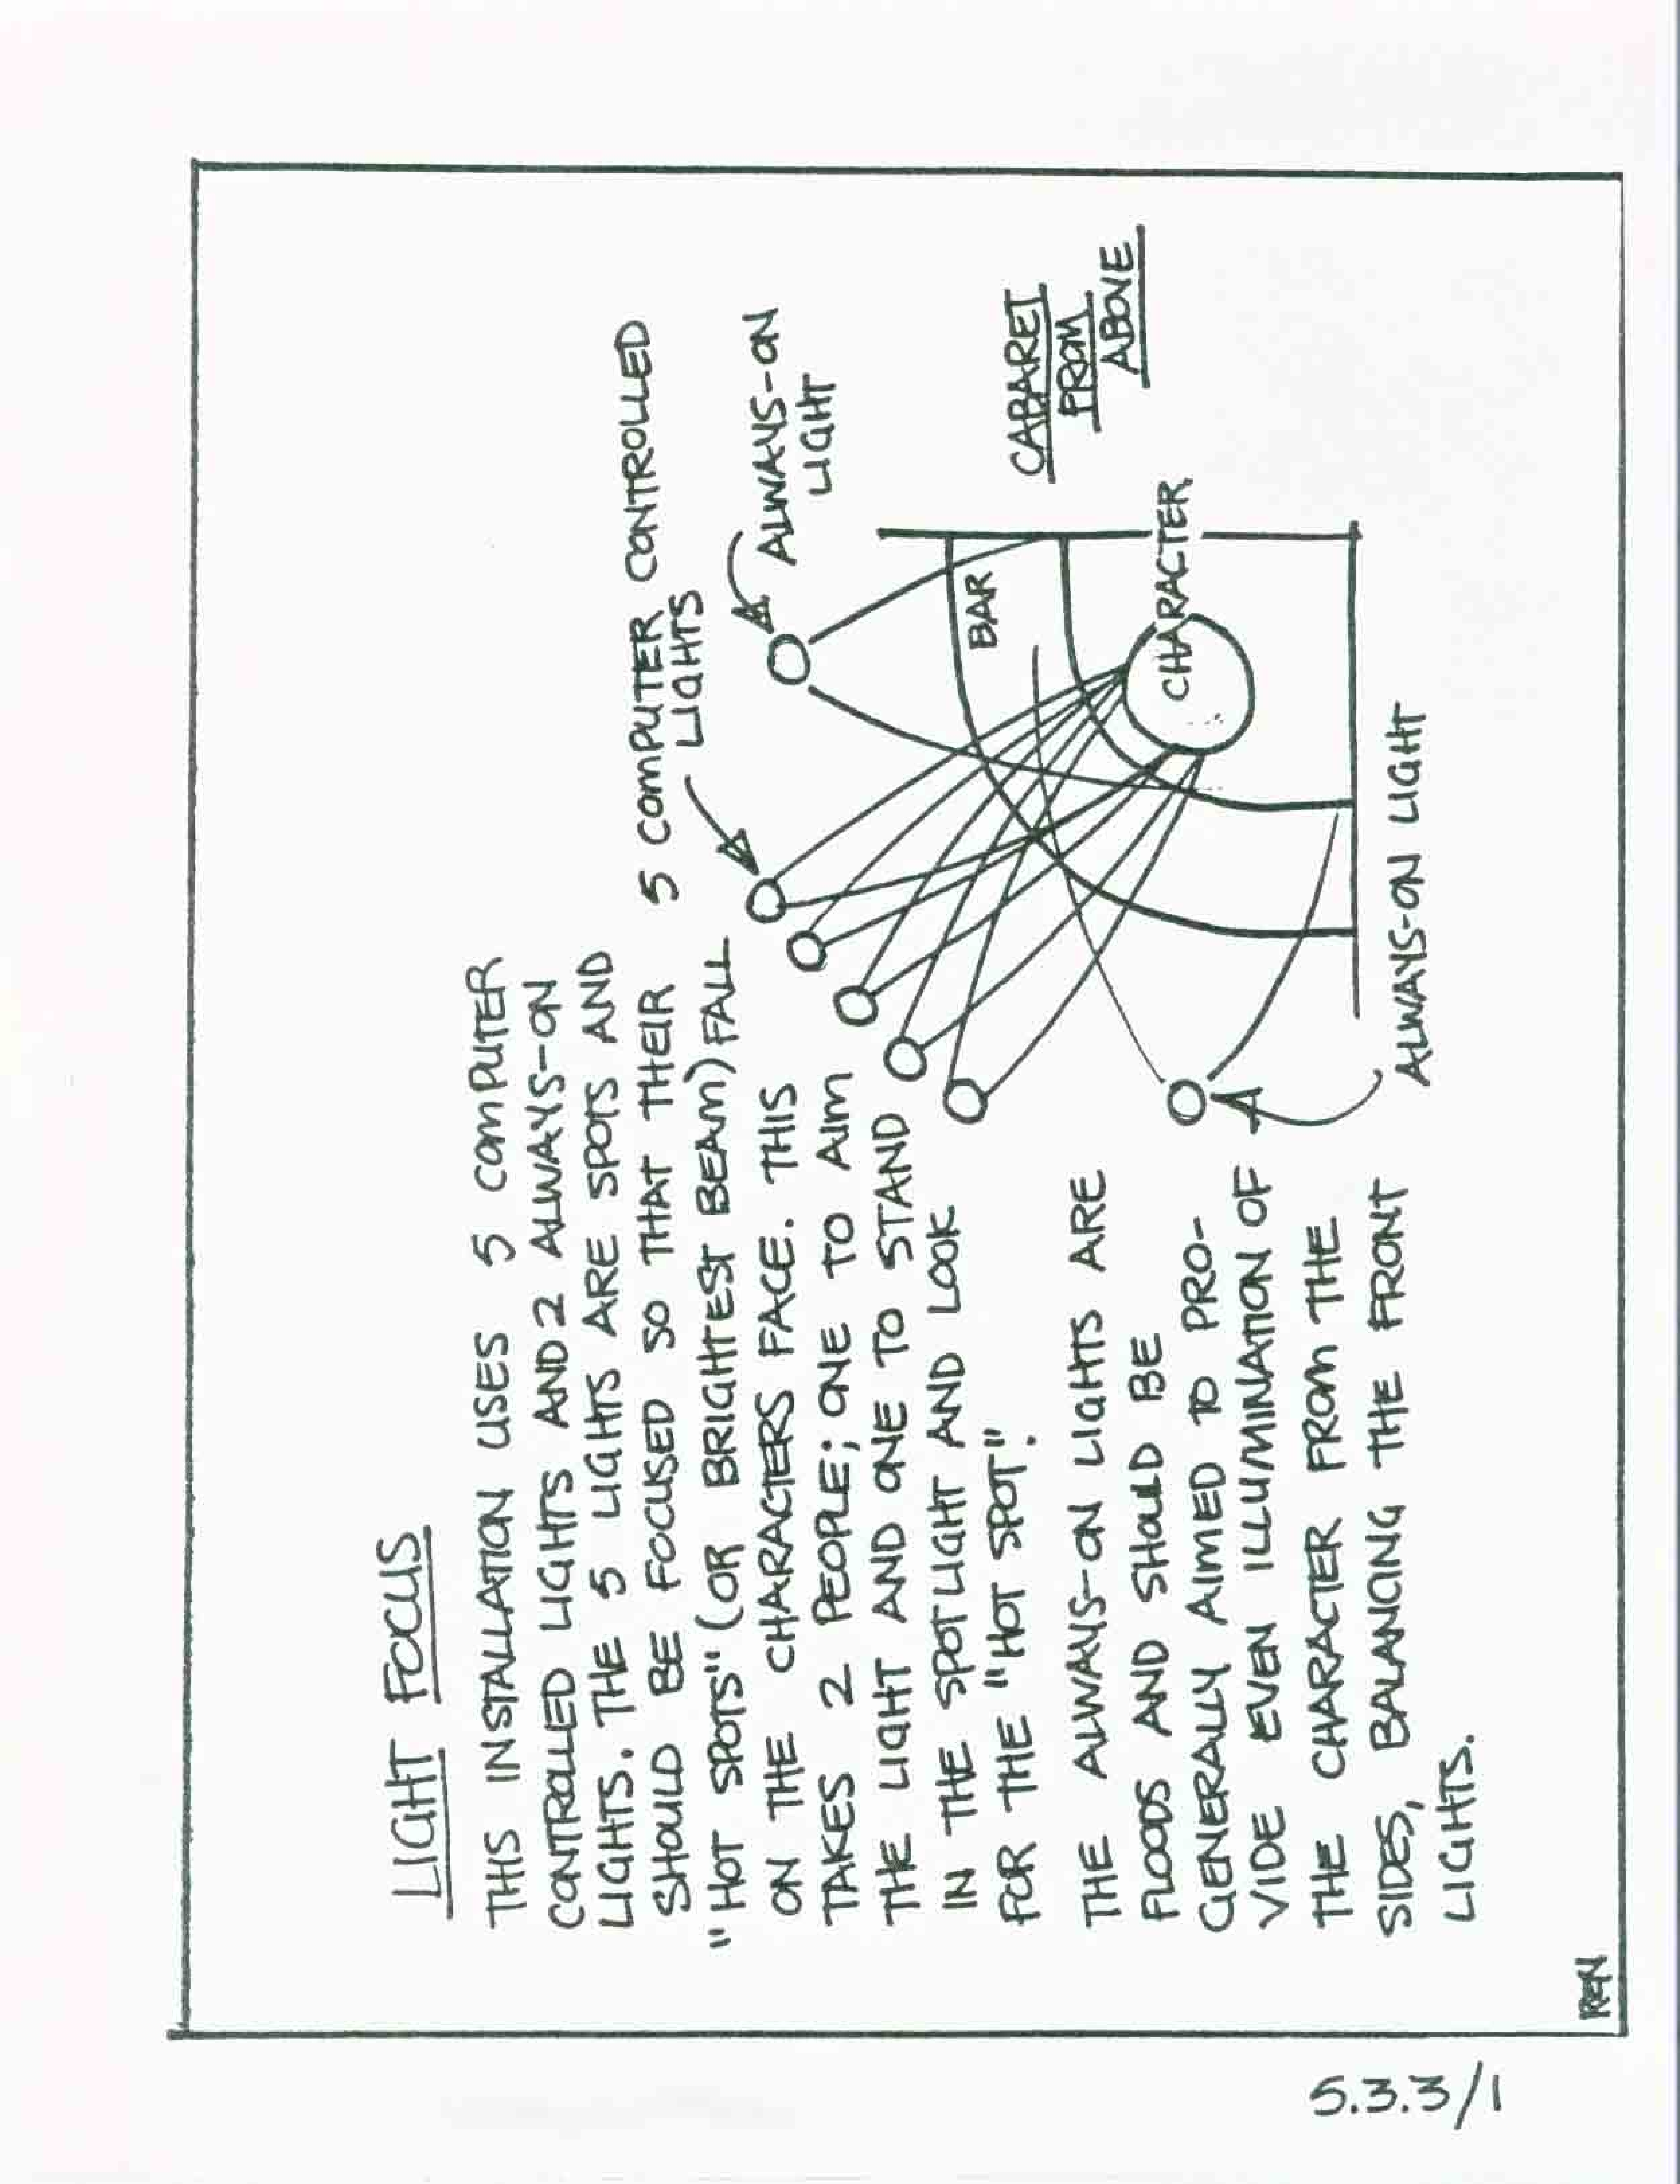 LIGHT FOCUS
THIS INSTALLATION USES 5 COMPUTER
CONTROLLED LIGHTS AND 2 ALWAYS-ON
LIGHTS. THE 5 LIGHTS ARE SPOTS AND
SHOULD BE FOCUSED SO THAT THEIR
"HOT SPOTS" (OR BRIGHTEST BEAM) FALL
ON THE CHARACTERS FACE. THIS
TAKES 2 PEOPLE; ONE TO AIM
THE LIGHT AND ONE TO STAND
IN THE SPOTLIGHT AND LOOK
FOR THE "HOT SPOT".
THE ALWAYS-ON LIGHTS ARE
FLOODS AND SHOULD BE
GENERALLY AIMED TO PRO-
VIDE EVEN ILLUMINATION OF
THE CHARACTER FROM THE
SIDES, BALANCING THE FRONT
LIGHTS.
5 COMPUTER CONTROLLED
LIGHTS
ALWAYS-ON
LIGHT
BAR
CHARACTER
CABARET
FROM
ABOVE
ALWAYS-ON LIGHT
5.3.3/1